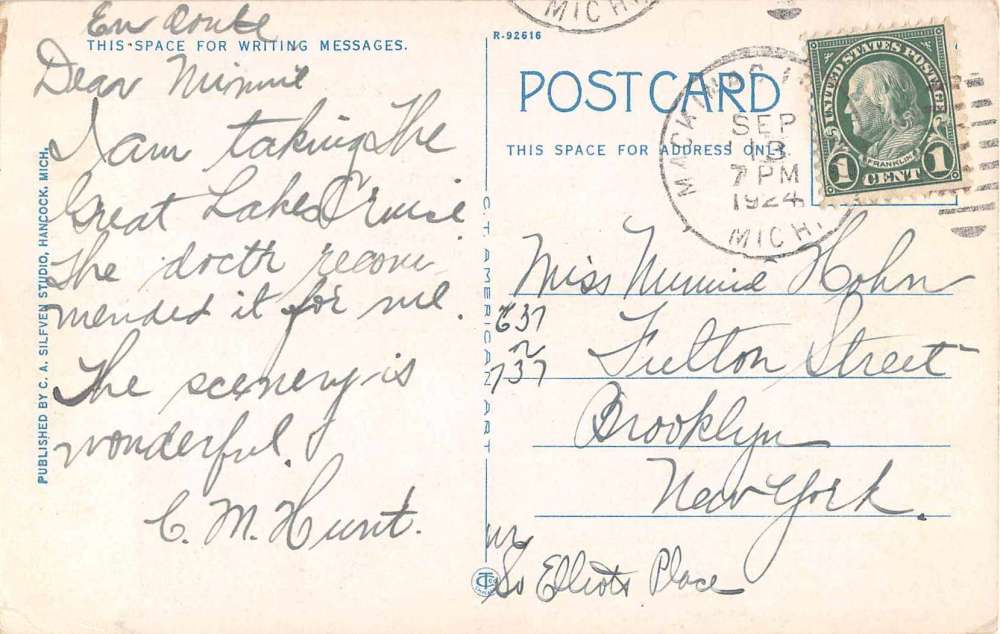 En Route
THIS SPACE FOR WRITING MESSAGES.
Dear Minnie
I am taking the
Great Lakes Cruise
The docth recom-
mended it for me.
The scenery is
wonderful.
C. M. Hunt.
PUBLISHED BY C. A. SILFVEN STUDIO, HANCOCK, MICH.
C. T. AMERICAN ART
R-92616
POST CARD
THIS SPACE FOR ADDRESS ONLY.
MICH.
MACKINAC I
SEP
13
7 PM
1924
MICH.
UNITED STATES POSTAGE
FRANKLIN
1 CENT 1
Miss Minnie Hohn
637
737
Fulton Street
Brooklyn
New York.
So Elliots Place